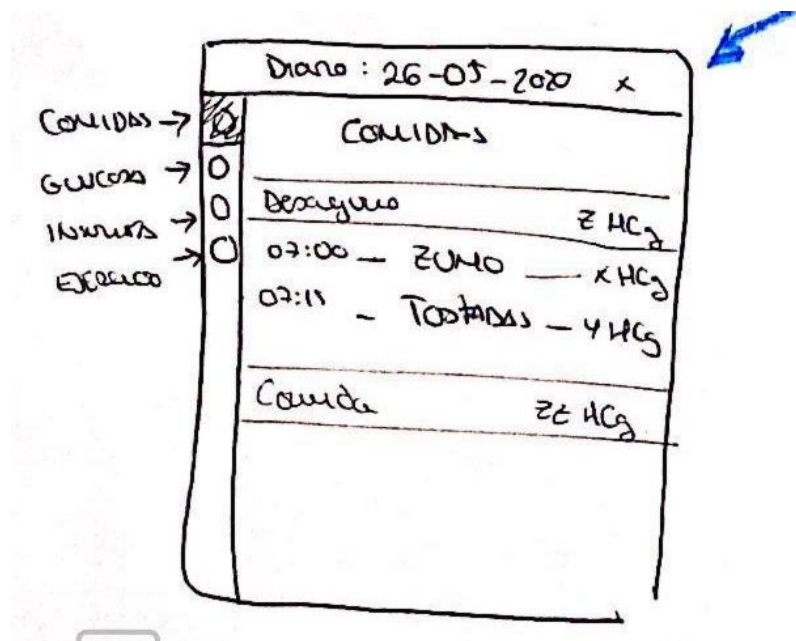 Diario: 26-05-2020 x
COMIDAS
GLUCOSA
INSULINA
EJERCICIO
COMIDAS
Desayuno Z HCg
07:00 - ZUMO - x HCg
07:15 - TOSTADAS - Y HCg
Comida ZZ HCg